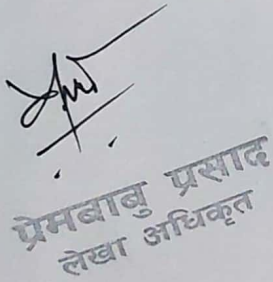 प्रेमबाबु प्रसाद
लेखा अधिकृत